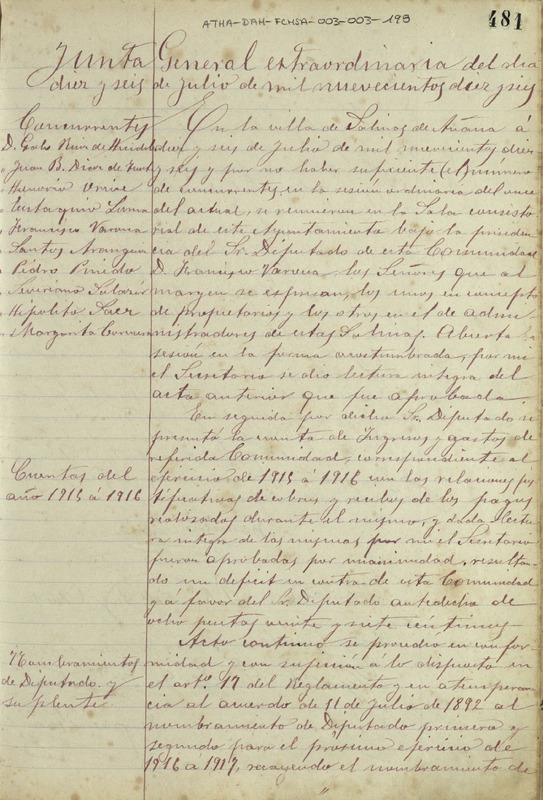 ATHA-DAH-FCHSA-003-003-198
481
Junta General extraordinaria del dia
diez y seis de julio de mil nuevecientos diez y seis
Concurrentes
D. Galo Ruiz de
" Juan B. Diaz de
" Honorio Urrior
" Eustaquio Luma
" Francisco Varona
" Santos Aranguiz
" Pedro Pinedo
" Severiano Salazar
" Hipolito Saez
" Margarita
En la villa de Salinas de Añana á
diez y seis de julio de mil nuevecientos diez
y seis y por no haber suficiente número
de concurrentes en la sesion ordinaria del once
del actual, se reunieron en la Sala consisto
rial de este Ayuntamiento bajo la presiden
cia del Sr. Diputado de esta Comunidad
D. Francisco Varona los Señores que al
margen se expresan, los unos en concepto
de propietarios y los otros en el de admi
nistradores de estas Salinas. Abierta la
sesión en la forma acostumbrada, por mi
el Secretario se dio lectura integra del
acta anterior que fue aprobada
En seguida por dicho Sr. Diputado se
presentó la cuenta de Ingresos y gastos de
referida Comunidad, correspondiente al
Cuentas del
año 1915 á 1916
ejercicio de 1915 á 1916 con las relaciones jus
tificativas de cobros y recibos de los pagos
realizados durante el mismo, y dada lectu
ra integra de las mismas por mi el Secretario
fueron aprobadas por unanimidad, resultan-
do un deficit en contra de esta Comunidad
y á favor del Sr. Diputado antedicho de
ocho pesetas veinte y siete céntimos
Acto continuo se procedio en confor-
Nombramientos
de Diputado y
suplente
midad y con sujecion a lo dispuesto en
el artº. 17 del Reglamento y en atempera
cia al acuerdo de 11 de julio de 1892 al
nombramiento de Diputado primero y
segundo para el próximo ejercicio de
1916 a 1917, recayendo el nombramiento de
"